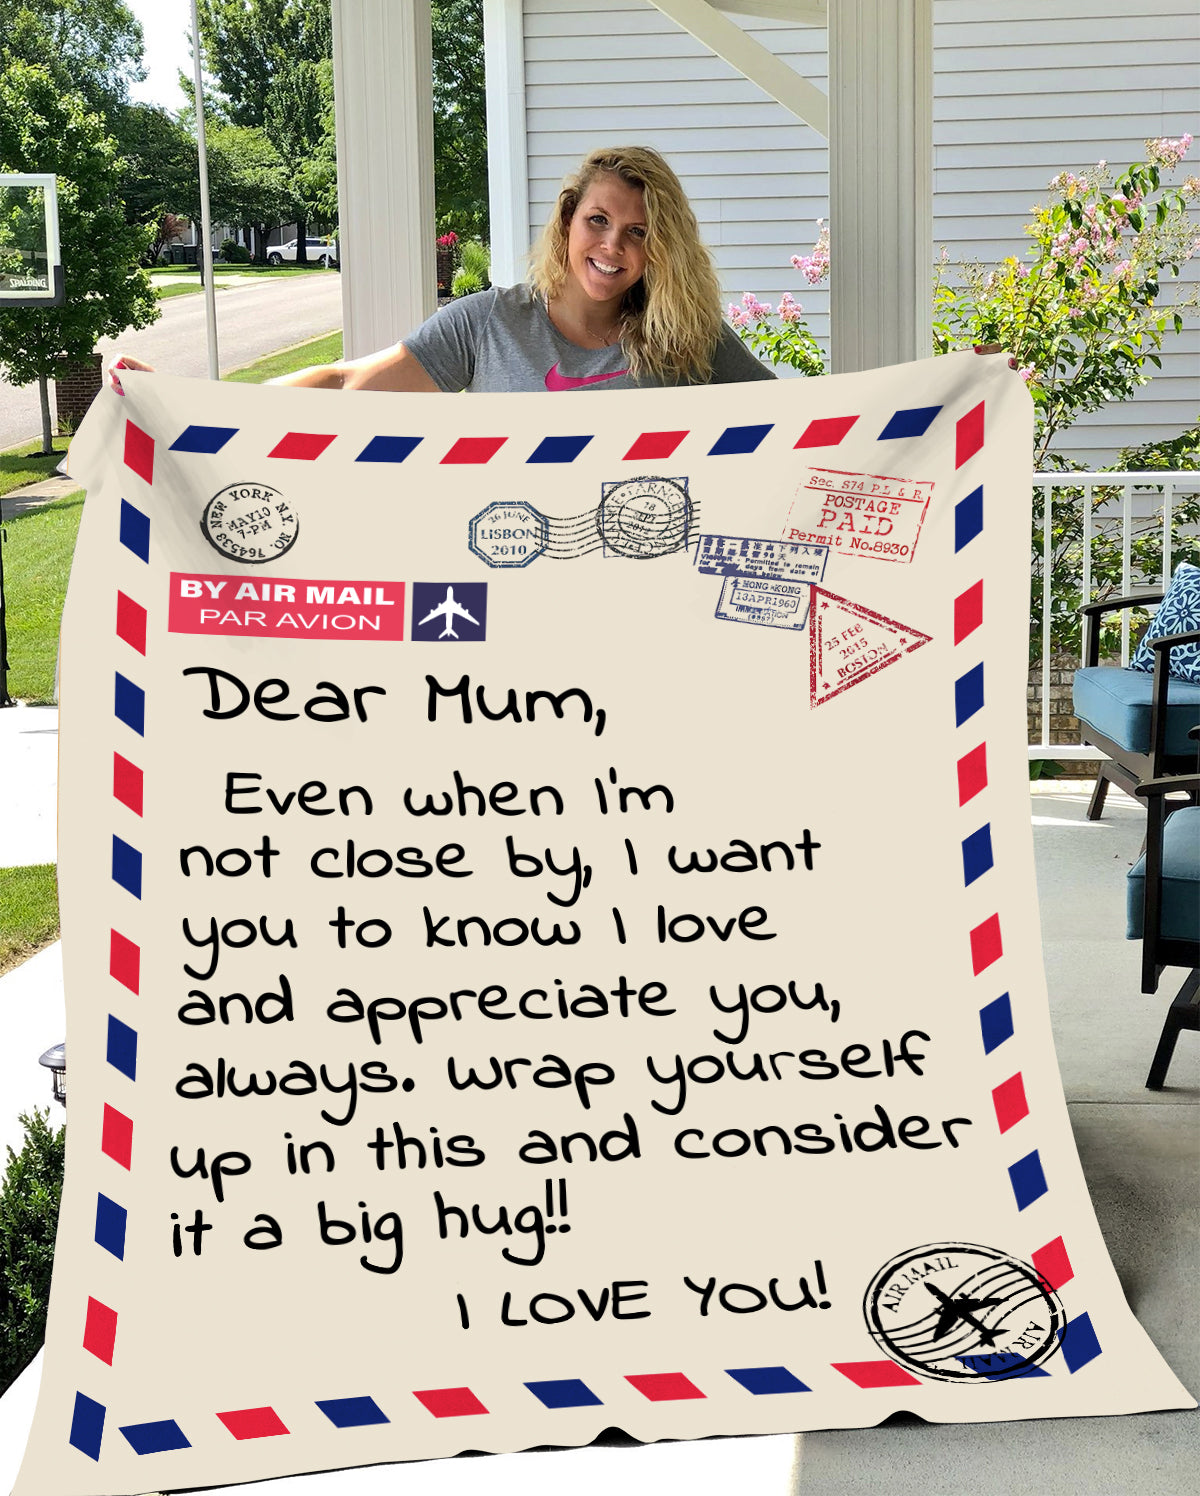 SPALDING
NEW YORK N.Y.
MAY10
7-PM
764538 NO.
26 JUNE
LISBON
2010
Sec. S74 P.L & R.
POSTAGE
PAID
Permit No.8930
Permitted to remain
HONG KONG
13APR1960
IMMIGRATION
25 FEB
2015
BOSTON
BY AIR MAIL
PAR AVION
Dear Mum,
Even when I'm
not close by, I want
you to know I love
and appreciate you,
always. Wrap yourself
up in this and consider
it a big hug!!
I LOVE YOU!
AIR MAIL
AIR MAIL